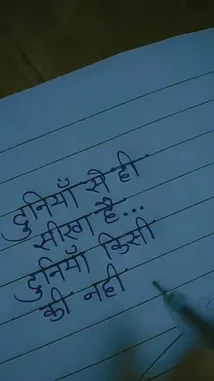 दुनियाँ से ही
सीखा है...
दुनियाँ किसी
की नही